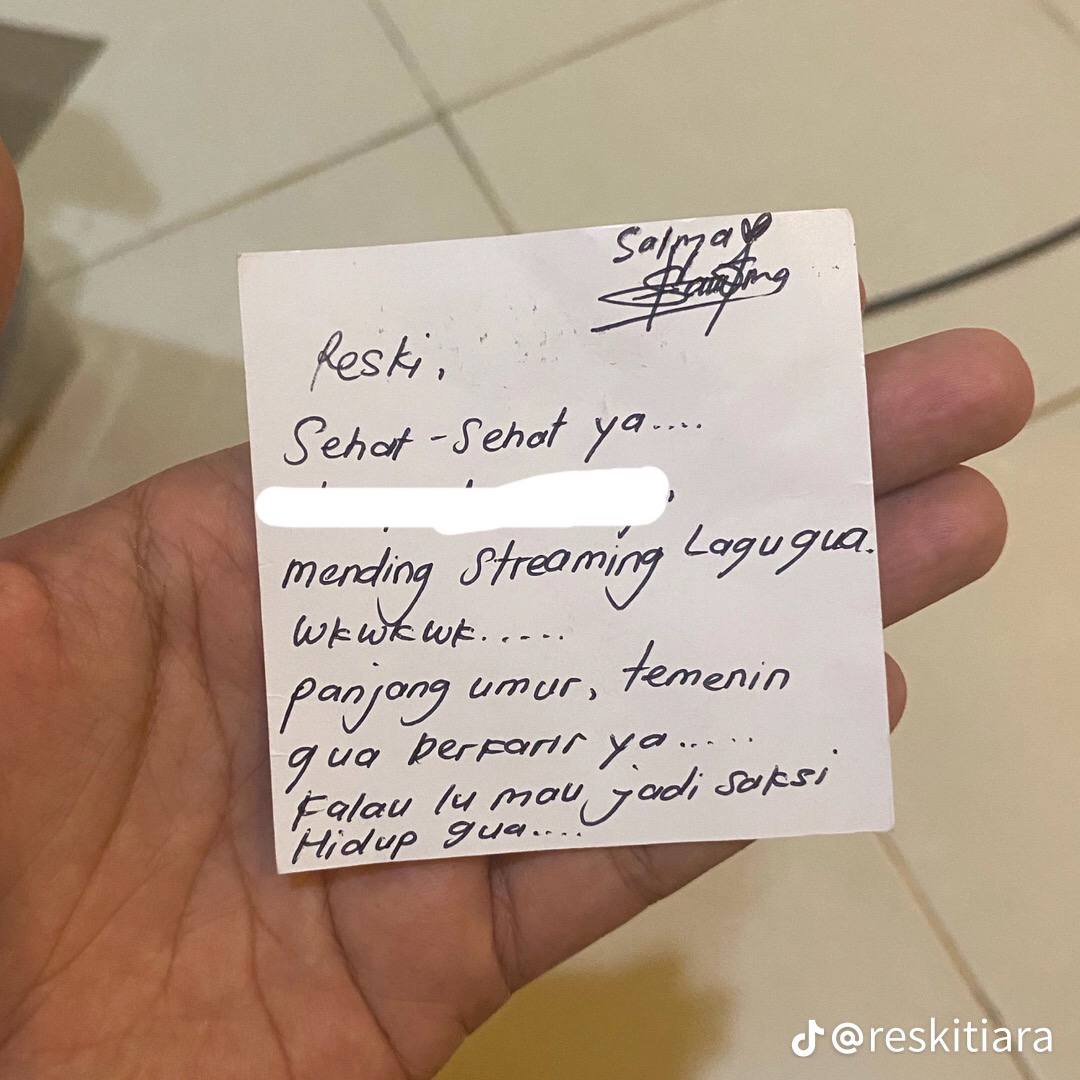 Salma
Reski,
Sehat-Sehat ya....
mending Streaming Lagu gua.
wkwkwk.....
panjang umur, temenin
gua berkarir ya.....
Kalau lu mau jadi saksi
Hidup gua....
@reskitiara